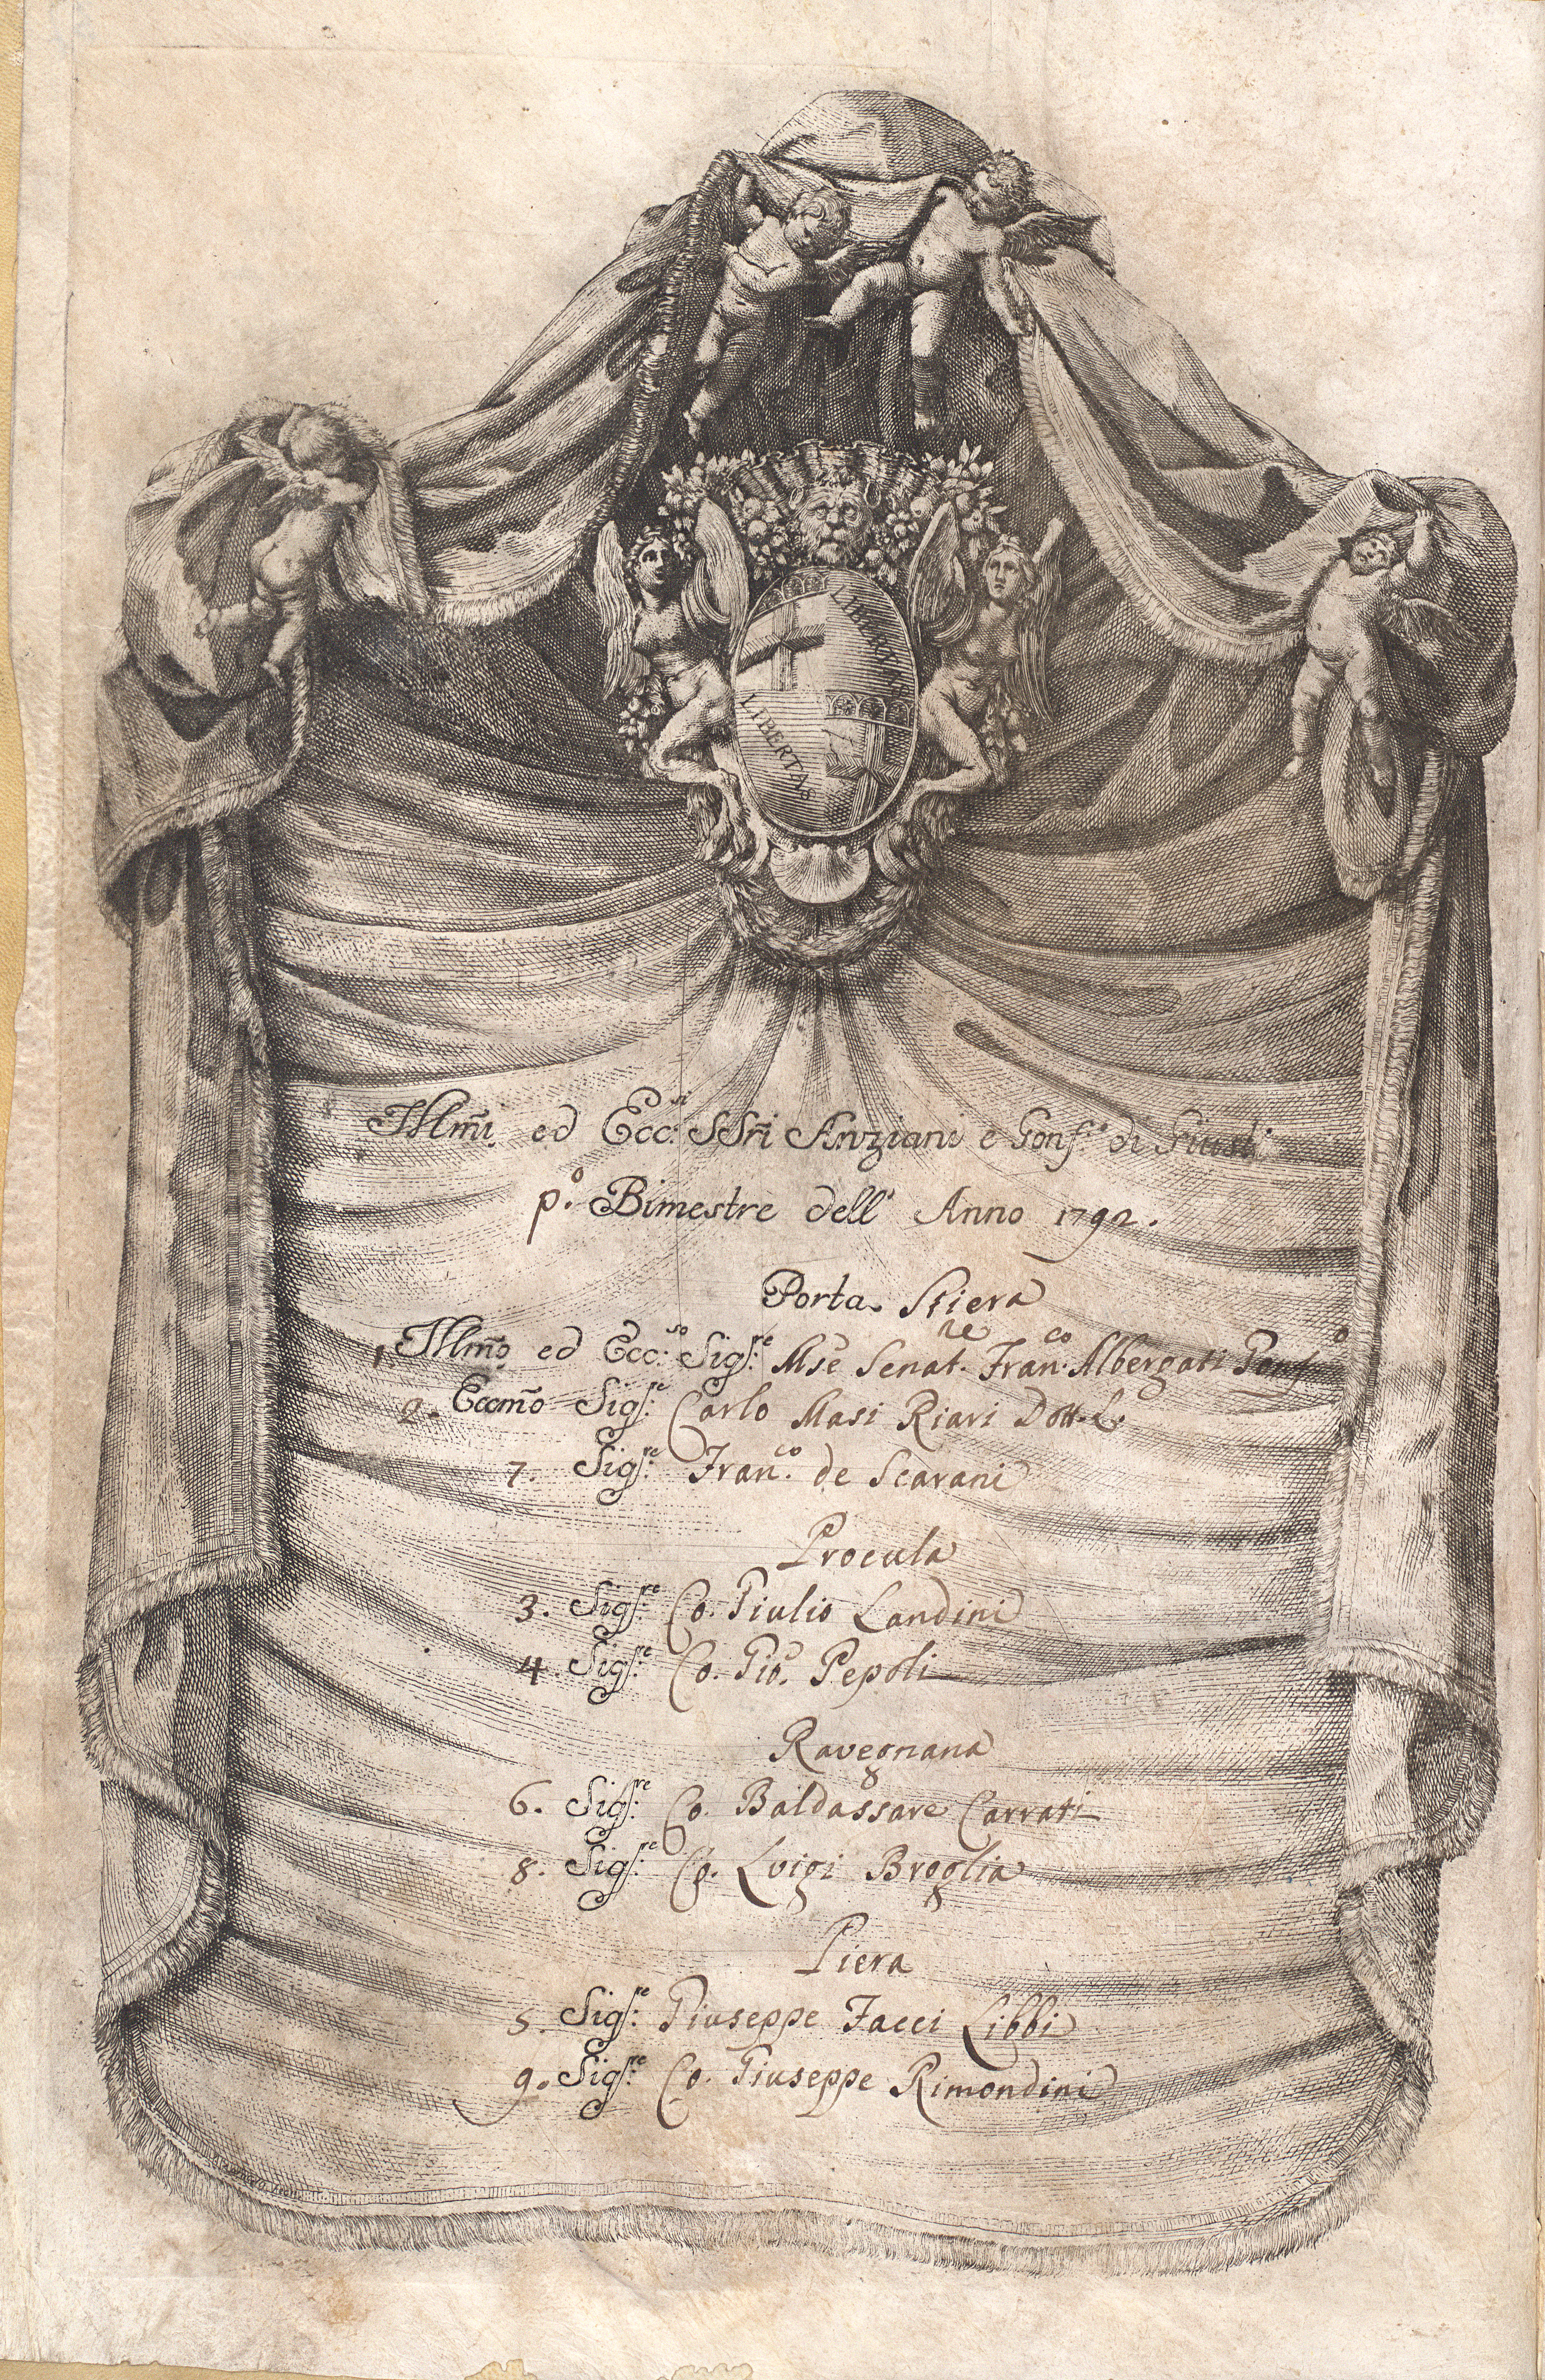 LIBERTAS
LIBERTAS
Illm̃i ed Ecc:si SSri Anziani e Gonf:e di
p.o Bimestre dell' Anno 1792.
Porta Stiera
1. Illm̃o ed Ecc:so Sig:re Mse Senat.re Fran.co Albergati Gonf.o
2. Eccm̃o Sig:re Carlo Masi Riari Dott. L.
7. Sig:re Fran.co de Scarani
Procula
3. Sig:re Co. Giulio Landini
4. Sig:re Co. Gio. Pepoli
Ravegnana
6. Sig:re Co. Baldassare Carrati
8. Sig:re Co. Luigi Broglia
Piera
5. Sig:re Giuseppe Facci Libbi
9. Sig:re Co. Giuseppe Rimondini